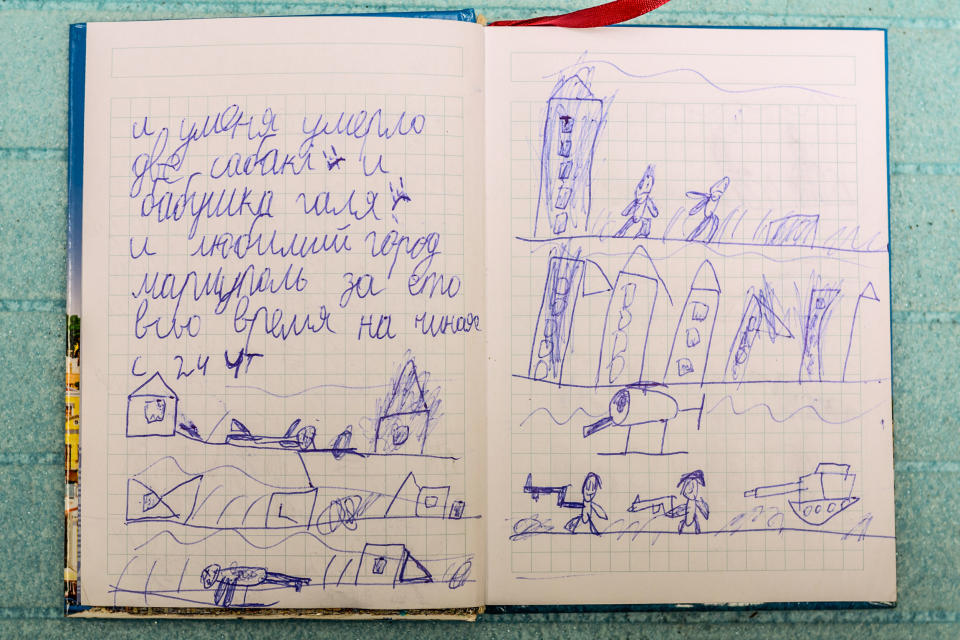 и уменя умерло
две сабакі и
бабушка галя
и любимий город
маріуполь за ето
всьо время на чиная
с 24 чт